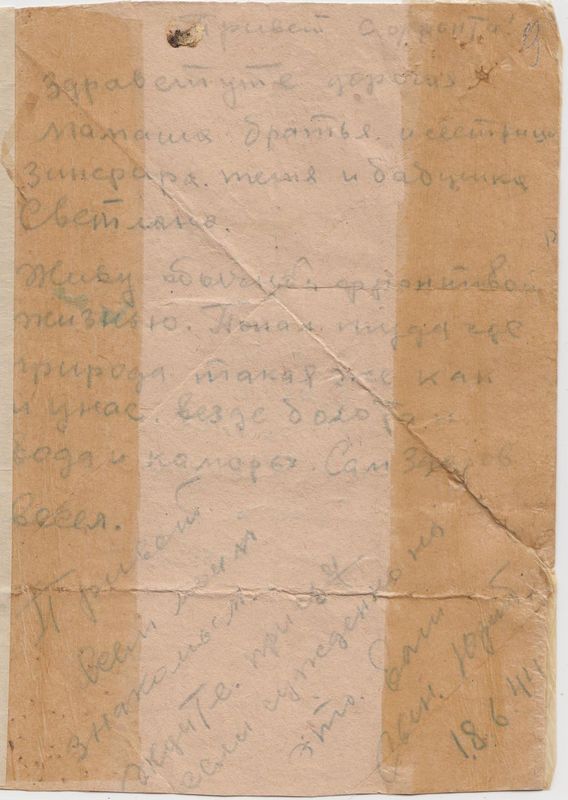 Привет с фронта!
Здравствуте дорогая
мамаша братья и сестрица
Зинсрара. тетя и бабушка
Светлана.
Живу обычной фронтвой
жизнью. Попал туда где
природа такая же как
и унас. везде болота и
вода и каморы. Сам здоров
весел.
Привет
всем моим
знакомым.
ждите. приеду
если суждено на
это. Ваш
сын. Юрий
18.6.44